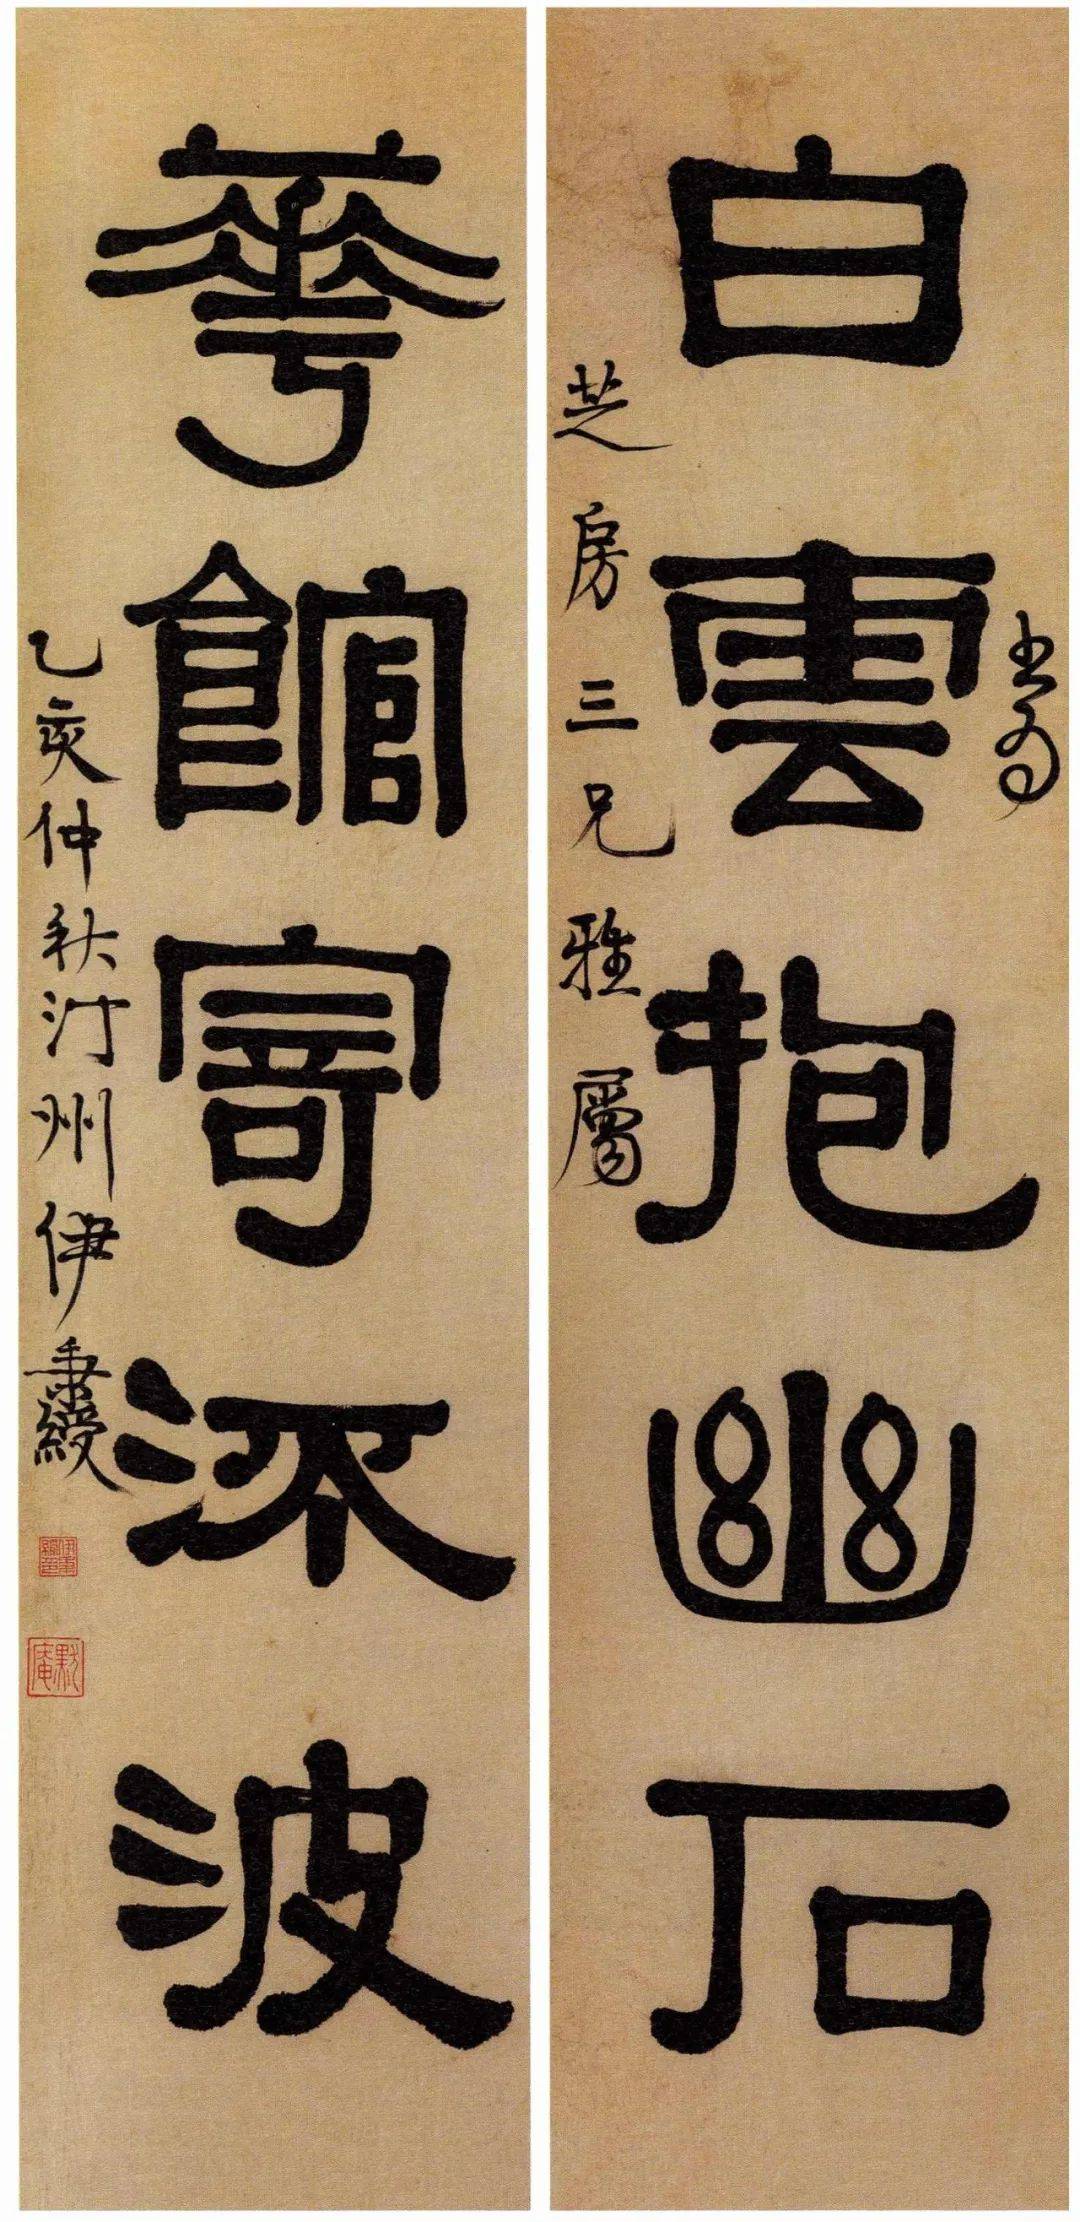 書為
白雲抱幽石
芝房三兄雅屬
華館寄流波
乙亥仲秋汀州伊秉綬
默庵